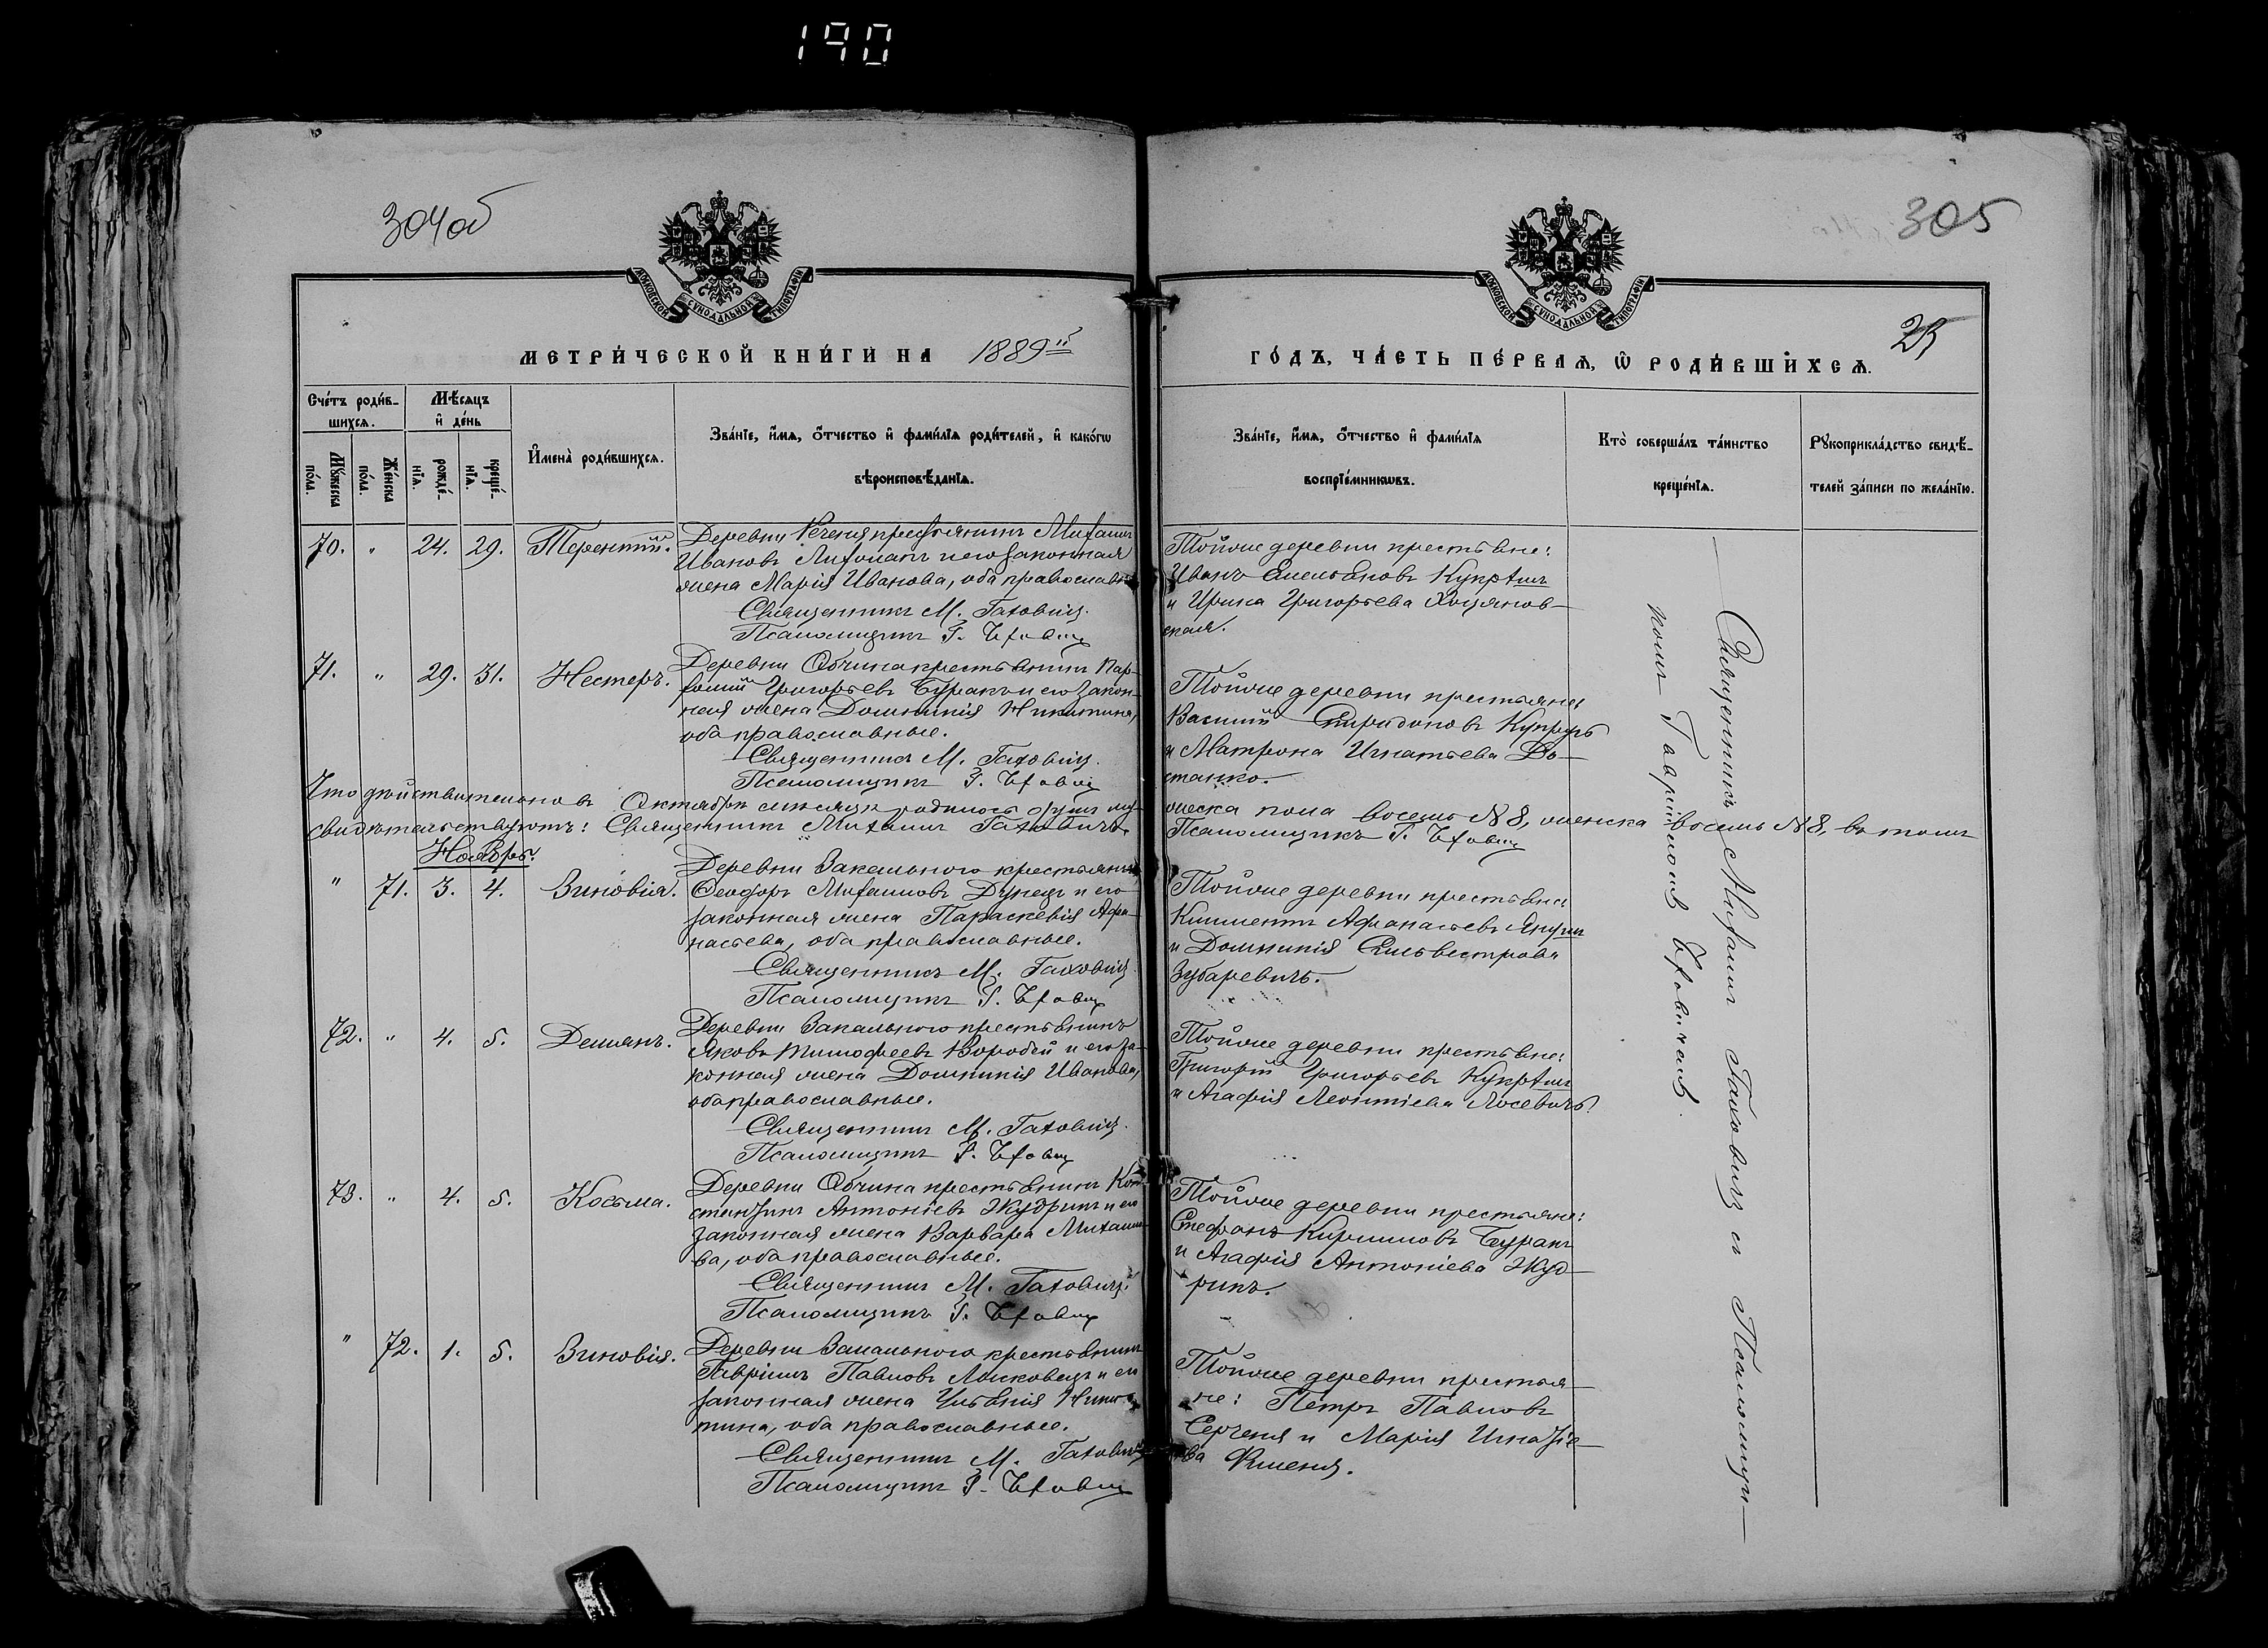 190
304об
305
МОСКОВСКОЙ СѴНОДАЛЬНОЙ ТИПОГРАФІИ
МОСКОВСКОЙ СѴНОДАЛЬНОЙ ТИПОГРАФІИ
МЕТРИ́ЧЕСКОЙ КНИ́ГИ НА 1889й
ГО́ДЪ, ЧА́СТЬ ПЕ́РВАѦ, Ѿ РОДИ́ВШИХСѦ. 25
Сче́тъ роди́в-
шихсѧ.
Мѣ́сѧцъ
и҆ де́нь
Мꙋ́жеска
по́ла.
Же́нска
по́ла.
рожде́-
нїѧ.
креще́-
нїѧ.
И҆мена̀ роди́вшихсѧ.
Зва́нїе, и҆́мѧ, ѻ҆́тчество и҆ фами́лїѧ роди́телей, и҆ како́гѡ
вѣроисповѣ́данїѧ.
Зва́нїе, и҆́мѧ, ѻ҆́тчество и҆ фами́лїѧ
воспрїе́мникѡвъ.
Кто̀ соверша́лъ та́инство
креще́нїѧ.
Рꙋкоприкла́дство свидѣ́-
телей за́писи по жела́нїю.
70. " 24. 29. Терентій. Деревни крестьянинъ Михаилъ
Ивановъ и его законная
жена Марія Иванова, оба православн
Священникъ М. Гаховичъ.
Псаломщикъ Г.
Тойже деревни крестьяне:
Иванъ Емельяновъ
и Ирина Григорьева
ская.
71. " 29. 31. Несторъ. Деревни Обчина крестьянинъ Пар-
феній Григорьевъ Буракъ и его закон-
ная жена Домникія Никитина,
оба православные.
Священникъ М. Гаховичъ.
Псаломщикъ Г.
Тойже деревни крестьяне:
Василій Спиридоновъ
и Матрона Игнатьева До-
станко.
Что дѣйствительно въ Октябрѣ мѣсяцѣ родилось душъ му-
жеска пола восемь № 8, женска восемь № 8, въ томъ
свидѣтельствуютъ: Священникъ Михаилъ Гаховичъ.
Псаломщикъ Г.
Ноябрь.
" 71. 3. 4. Зиновія. Деревни Закального крестьянинъ
Ѳеодоръ Михаиловъ Дунецъ и его
законная жена Параскевія Афа-
насьева, оба православные.
Священникъ М. Гаховичъ
Псаломщикъ Г.
Тойже деревни крестьяне:
Климентъ Афанасьевъ
и Домникія Сильвестрова
Зубаревичъ.
72. " 4. 5. Деміанъ. Деревни Закального крестьянинъ
Яковъ Тимофеевъ Воробей и его за-
конная жена Домникія Иванова,
оба православные.
Священникъ М. Гаховичъ.
Псаломщикъ Г.
Тойже деревни крестьяне:
Григорій Григорьевъ
и Агафія Леонтіева Лосевичъ.
73. " 4. 5. Косьма. Деревни Обчина крестьянинъ Кон-
стантинъ Антоніевъ Жудрикъ и его
законная жена Варвара Михаило-
ва, оба православные.
Священникъ М. Гаховичъ.
Псаломщикъ Г.
Тойже деревни крестьяне:
Стефанъ Кириловъ Буракъ
и Агафія Антоніева Жуд-
рикъ.
" 72. 1. 5. Зиновія. Деревни Закального крестьянинъ
Гавріилъ Павловъ и его
законная жена Ульянія Ники-
тина, оба православные.
Священникъ М. Гаховичъ
Псаломщикъ Г.
Тойже деревни крестья-
не: Петръ Павловъ
Сергеня и Марія Игнатіе-
ва
Священникъ Михаилъ Гаховичъ съ Псаломщи-
комъ Гавріиломъ